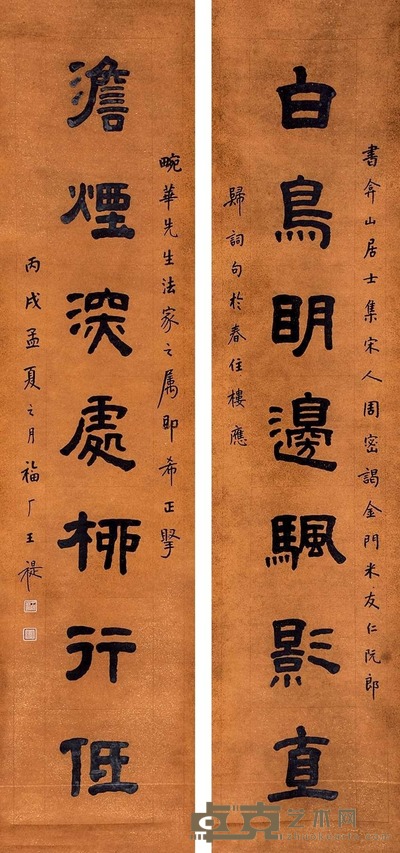 書弇山居士集宋人周密謁金門米友仁阮郎
白鳥眀邊颿影直
歸詞句於春住樓應
畹華先生法家之属即希正
澹煙深處柳行低
丙戌孟夏之月福厂王禔
卓克艺术网